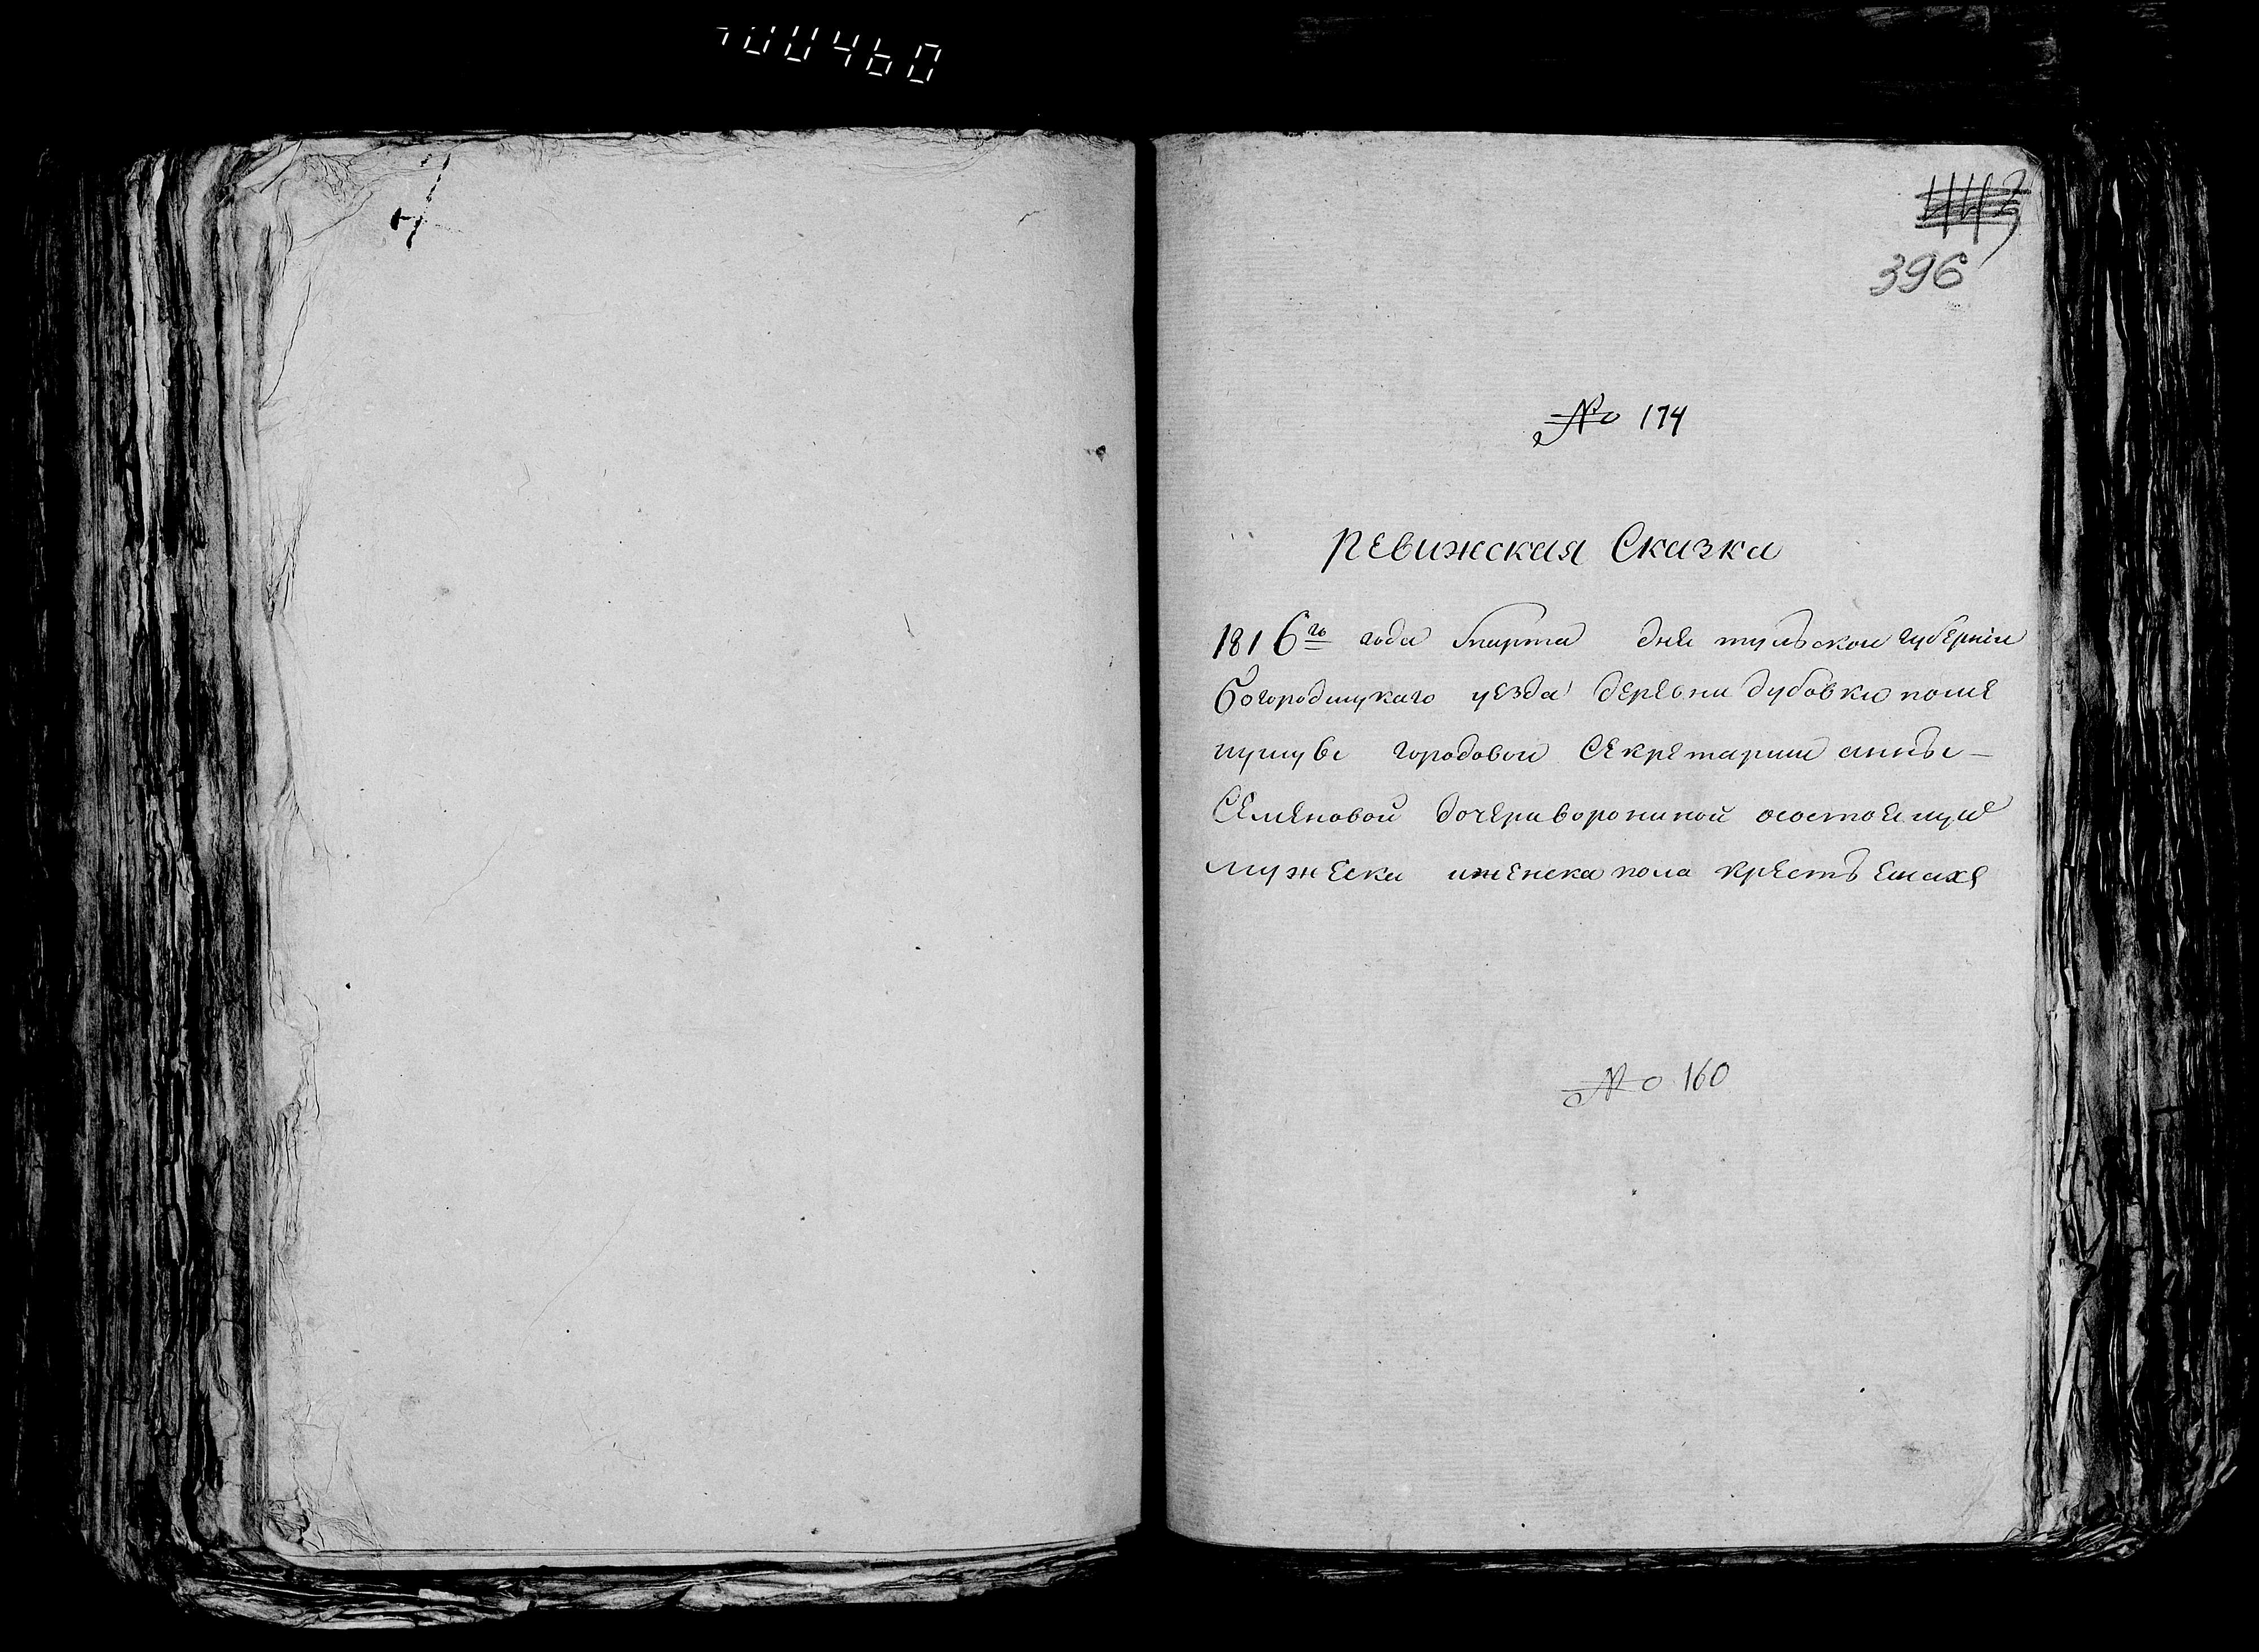 396
№ 174
Ревижская Сказка
1816го года марта дня тульской губернии
богородицкаго уезда деревни дубовки поме
щицы городовой Секретарши анны
Семеновой дочери ворониной осостоящие
мужеска иженска пола крестьенахъ
№ 160